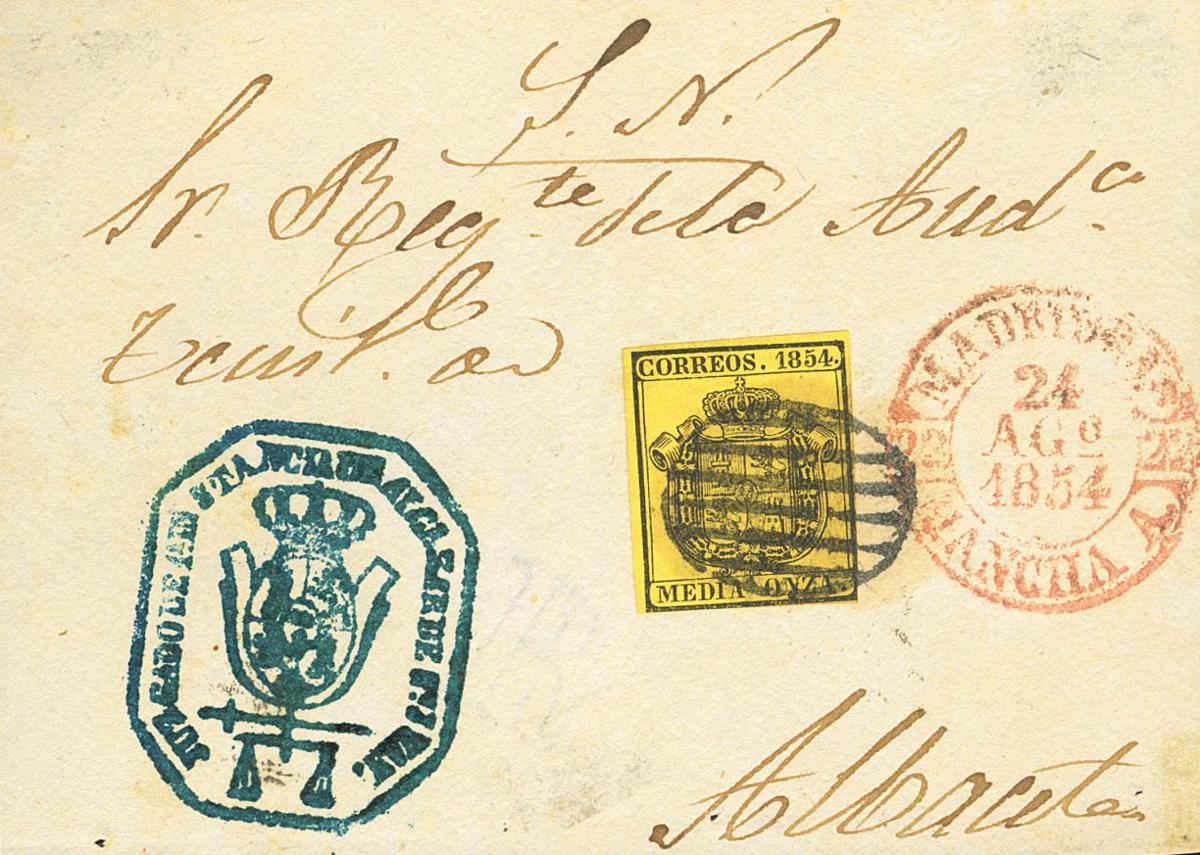 S. N.
Sr. Reg.te de la Aud.a
CORREOS. 1854.
MEDIA ONZA
MADRID
24
AGº
1854
MANCHA
JUZGADO DE INSTANCIA DE ALCAZAR DE S. JUAN.
Albacete